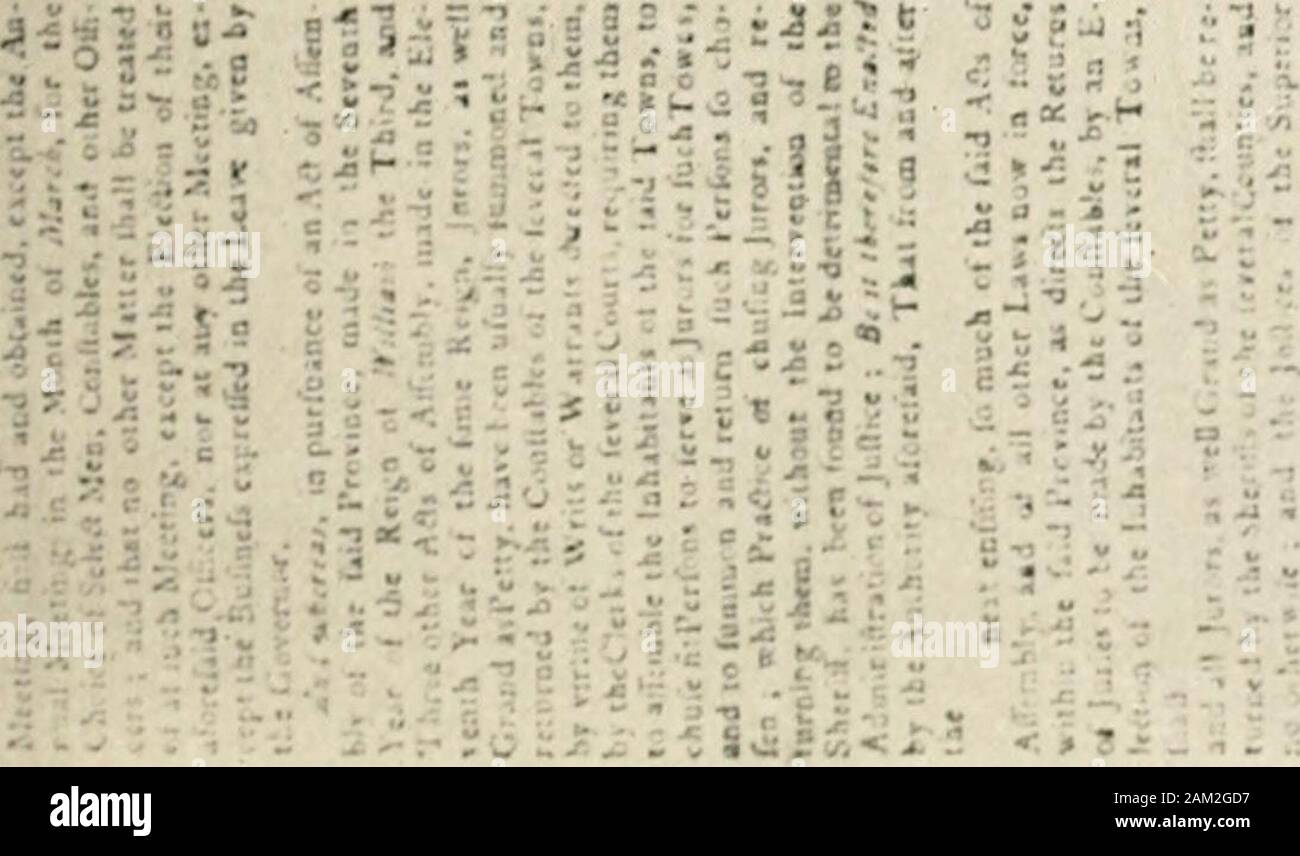 Meeting had and obtained, except the An-
nual Meeting in the Month of March, for the
Choice of Select Men, Constables, and other Offi-
cers; and that no other Matter shall be treated
of at such Meeting, except the Election of their
aforesaid Officers, nor at any other Meeting, ex-
cept the Business expressed in the Leave given by
the Governor.
And whereas, in pursuance of an Act of Assem-
bly of the said Province, made in the Seventh
Year of the Reign of William the Third, and
Three other Acts of Assembly, made in the Ele-
venth Year of the same Reign, Jurors, as well
Grand as Petty, have been usually summoned and
returned by the Constables of the several Towns,
by virtue of Writs or Warrants directed to them,
by the Clerks of the several Courts, requiring them
to assemble the Inhabitants of the said Towns, to
chuse fit Persons to serve as Jurors for such Towns,
and to summon and return such Persons so cho-
sen; which Practice of chusing Jurors, and re-
turning them, without the Intervention of the
Sheriff, has been found to be detrimental to the
Administration of Justice; Be it therefore Enacted
by the Authority aforesaid, That from and after
the
next ensuing, so much of the said Acts of
Assembly, and of all other Laws now in force,
within the said Province, as directs the Returns
of Juries to be made by the Constables, by an E-
lection of the Inhabitants of the several Towns,
and all Jurors, as well Grand as Petty, shall be re-
turned by the Sheriffs of the several Counties, and
no otherwise; and the Justices of the Superior
alamy
Image ID: 2AM2GD7
www.alamy.com